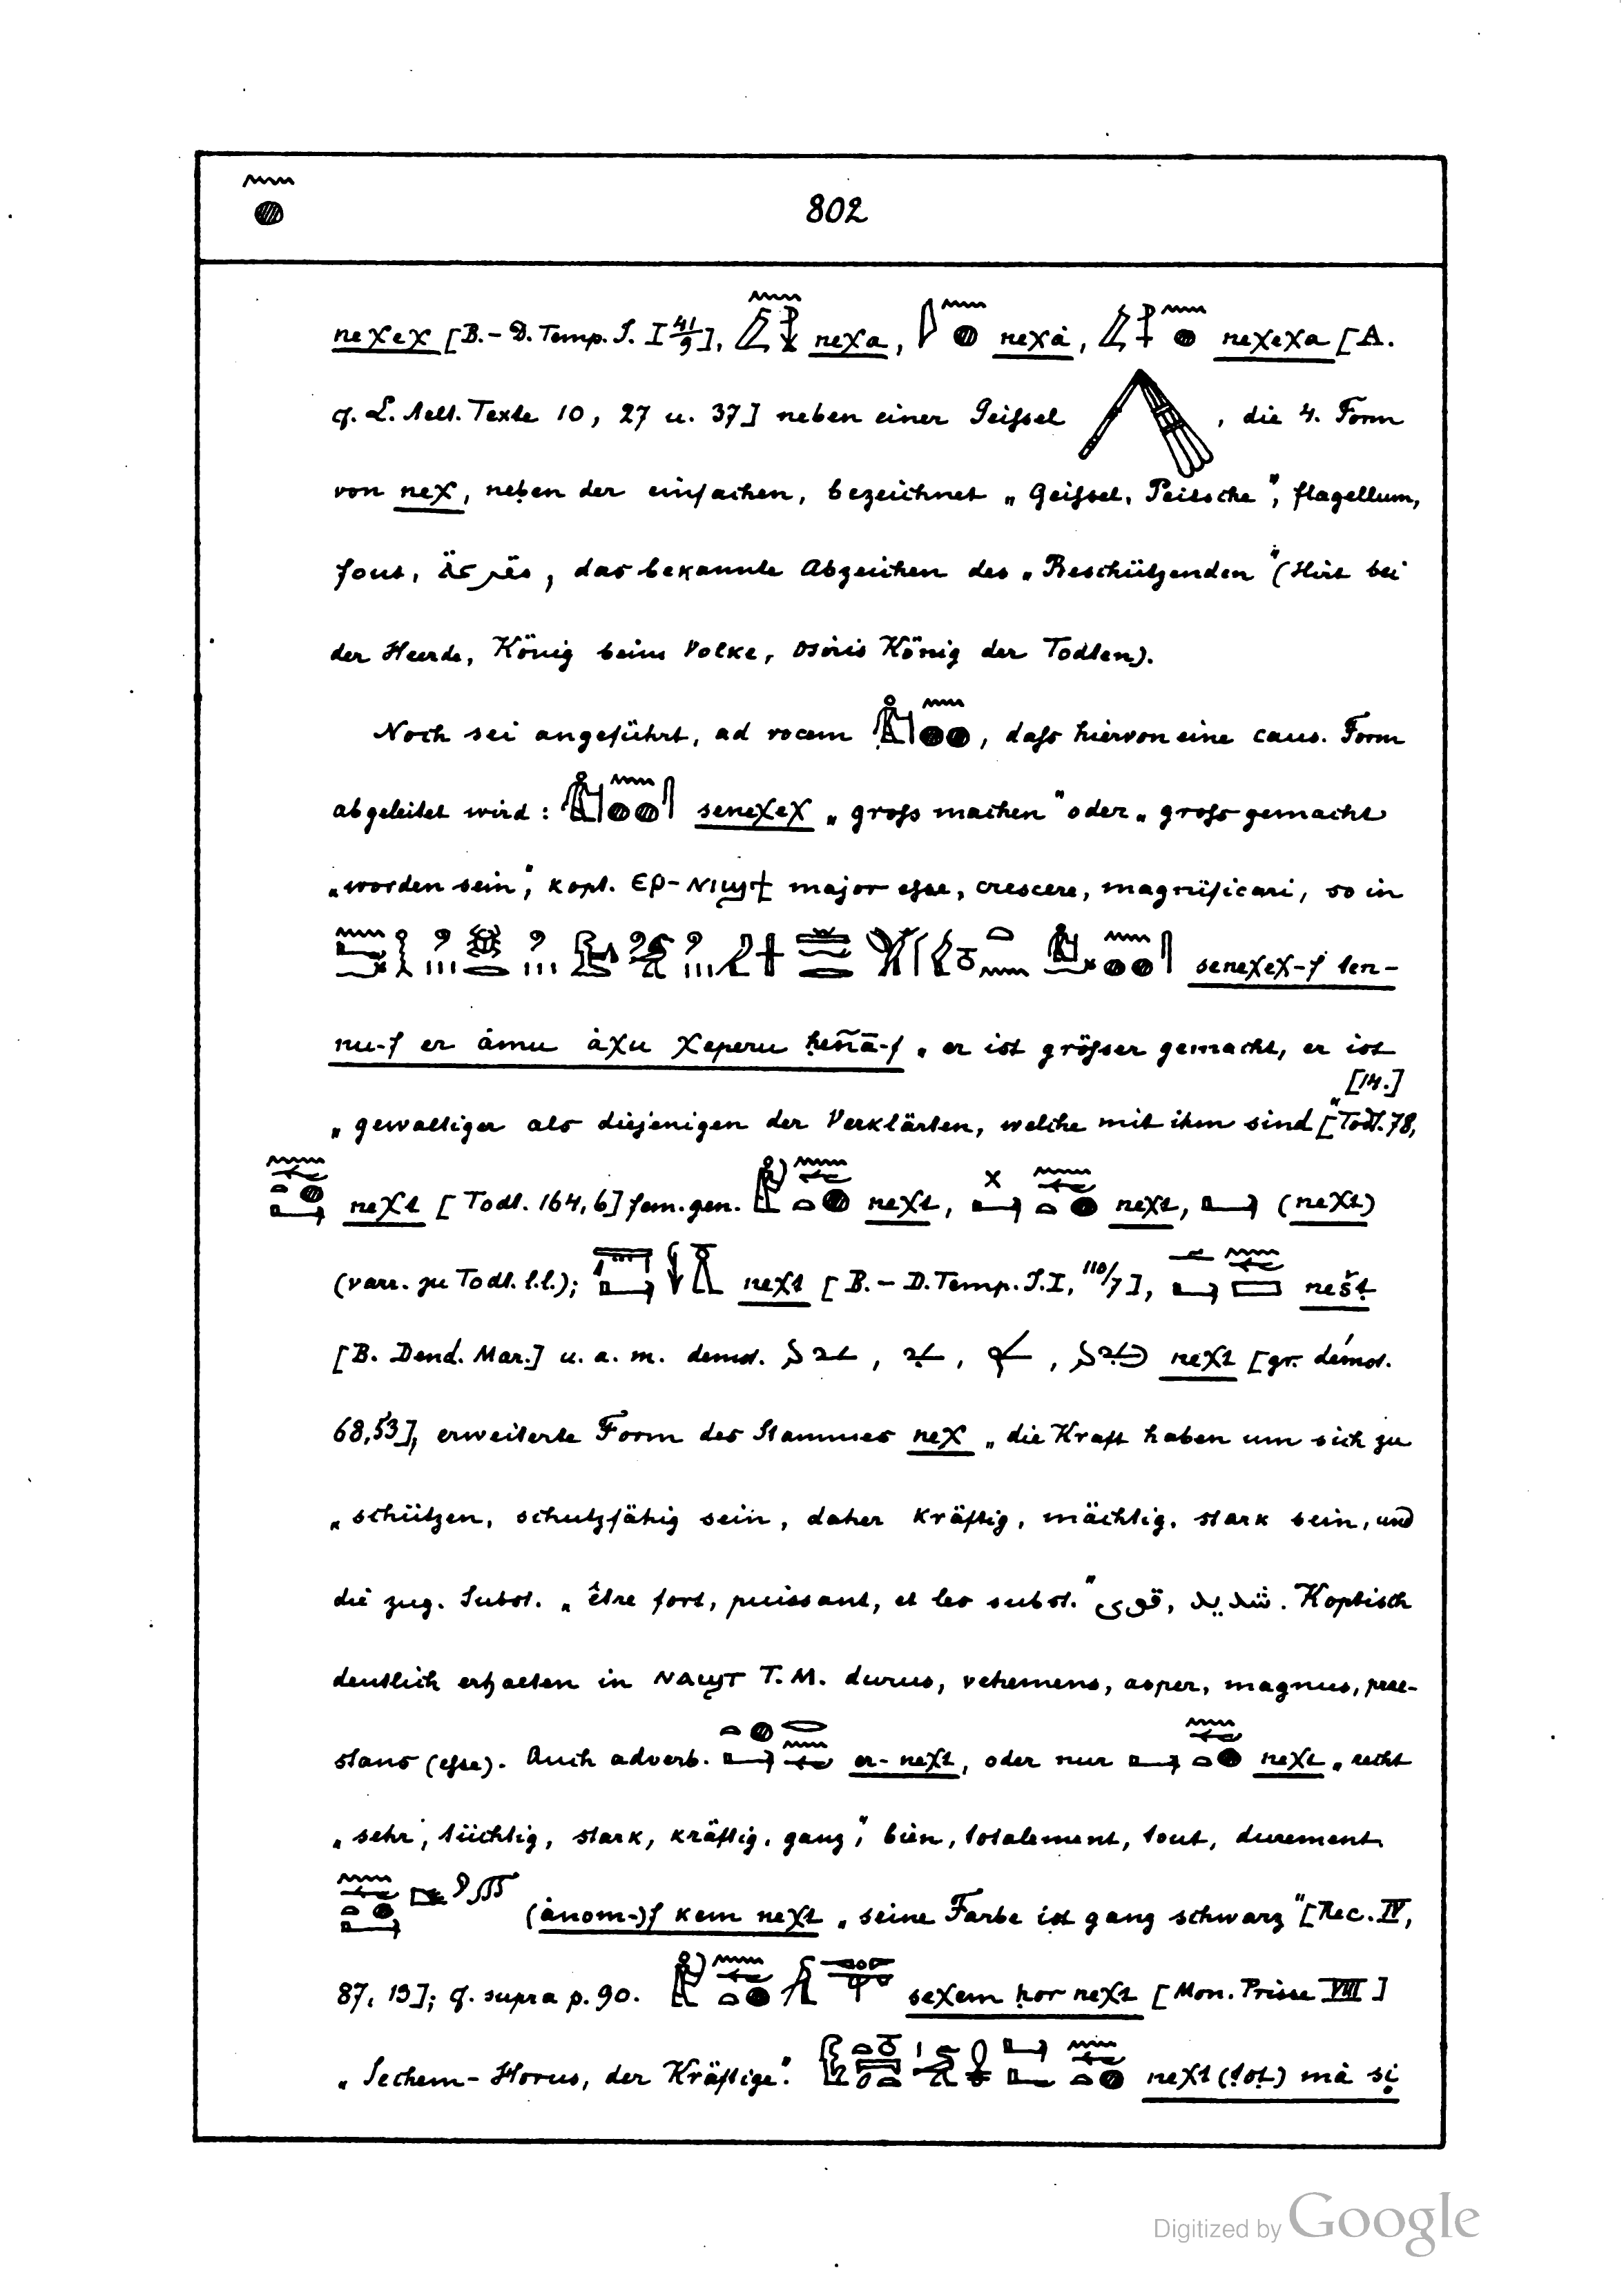 802
neχeχ [B.-D. Temp. I. I 41/9], neχa, neχȧ, neχeχa [A.
cf. L. Aelt. Texte 10, 27 u. 37] neben einer Geissel , die 4. Form
von neχ, neben der einfachen, bezeichnet „Geissel, Peitsche", flagellum,
fouet, das bekannte Abzeichen des „Beschützenden" (Hirt bei
der Heerde, König beim Volke, Osiris König der Todten).
Noch sei angeführt, ad vocem , dass hiervon eine caus. Form
abgeleitet wird: seneχeχ „gross machen" oder „gross gemacht
„worden sein", kopt. ⲉⲣ-ⲛⲓϣϯ major esse, crescere, magnificari, so in
seneχeχ-f ten-
nu-f er ȧmu ȧχu χeperu ḥenā-f „er ist grösser gemacht, er ist
„gewaltiger als diejenigen der Verklärten, welche mit ihm sind" [Todt. 78,
[14.]
neχt [Todt. 164, 6] fem. gen. neχt, neχt, (neχt)
(varr. zu Todt. l.l.); neχt [B.-D. Temp. I. I, 110/7], nešt
[B. Dend. Mar.] u. a. m. demot. neχt [gr. démot.
68,53], erweiterte Form des Stammes neχ „die Kraft haben um sich zu
„schützen, schutzfähig sein, daher kräftig, mächtig, stark sein, und
die zug. Subst. „être fort, puissant, et les subst." شديد ,قوى. Koptisch
deutlich erhalten in ⲛⲁϣⲧ T. M. durus, vehemens, asper, magnus, prae-
stans (esse). Auch adverb. er-neχt, oder nur neχt „recht
„sehr, tüchtig, stark, kräftig, ganz", bien, totalement, tout, durement
(ȧnom-)f kem neχt „seine Farbe ist ganz schwarz" [Rec. IV,
87, 19]; cf. supra p. 90. seχem ḥor neχt [Mon. Prisse VIII]
„Sechem-Horus, der Kräftige". neχt (ṭoṭ) mȧ si̩
Digitized by Google